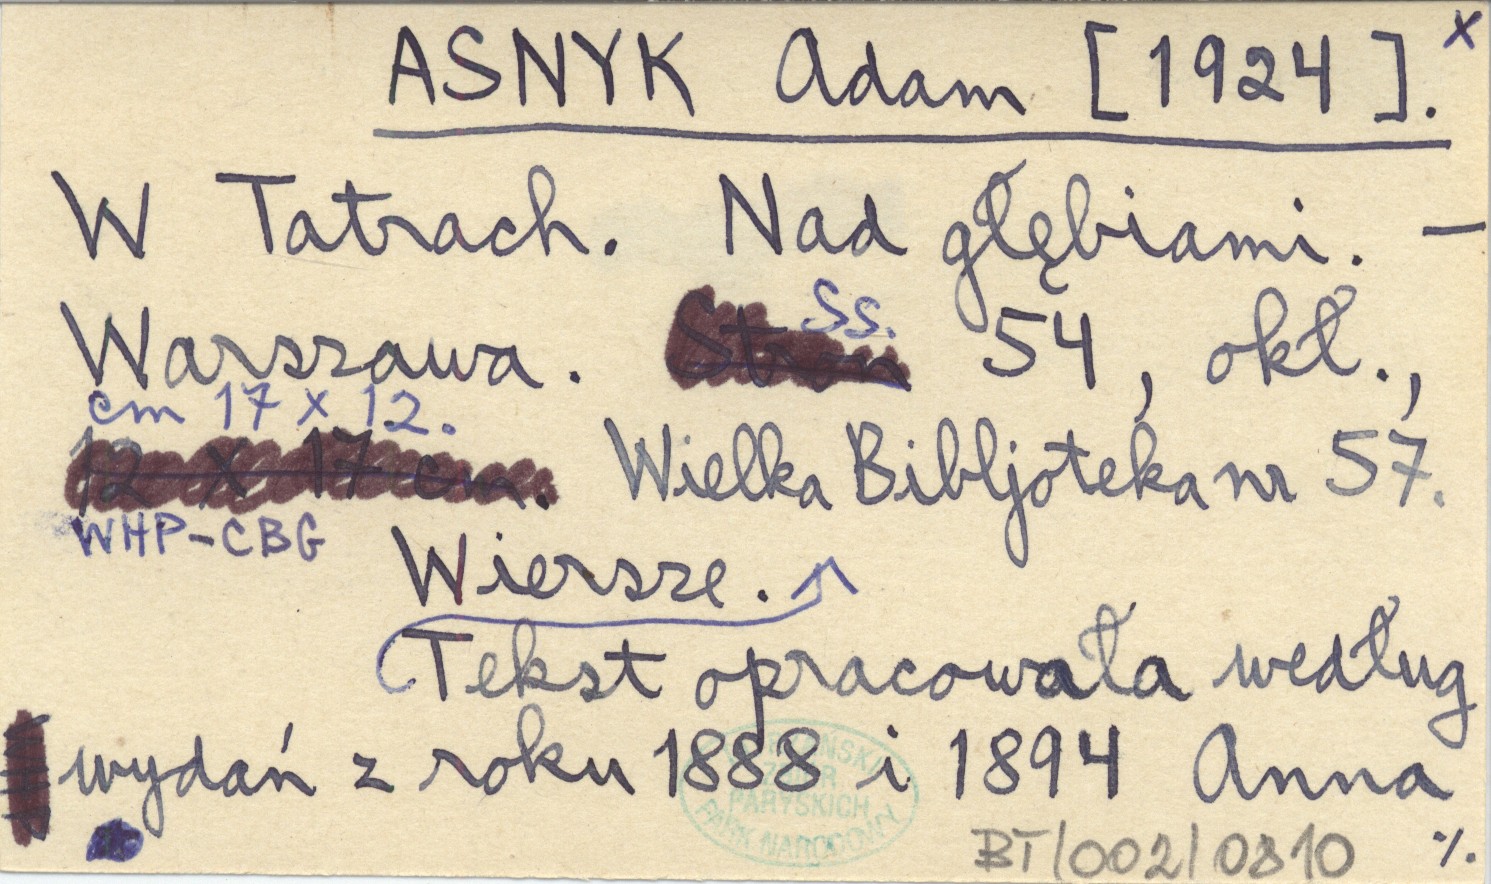 ASNYK Adam [1924]. x
W Tatrach. Nad głębiami. —
Warszawa. Stron Ss. 54, okł.,
cm 17 x 12.
12 x 17 cm. Wielka Bibljoteka nr 57.
WHP-CBG
Wiersze.
Tekst opracowała według
wydań z roku 1888 i 1894 Anna
PARYSKICH
PARK NARODOWY
BT/002/0310 ·/.